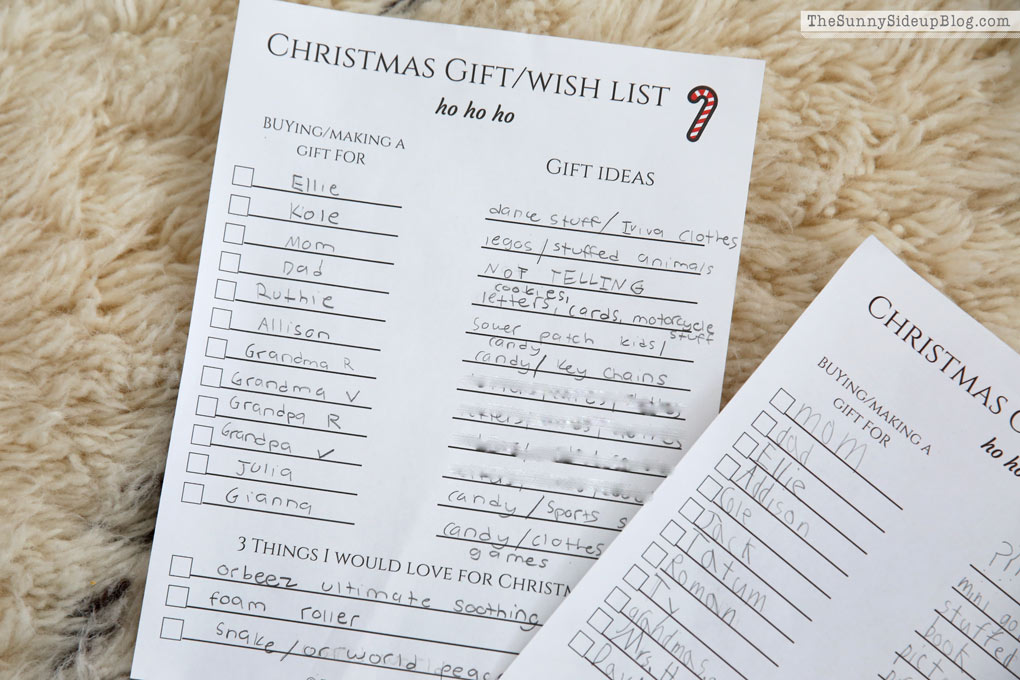 TheSunnySideupBlog.com
CHRISTMAS GIFT/WISH LIST
ho ho ho
BUYING/MAKING A
GIFT FOR
Ellie
Kole
Mom
Dad
Ruthie
Allison
Grandma R
Grandma V
Grandpa R
Grandpa V
Julia
Gianna
GIFT IDEAS
dance stuff/Iviva clothes
legos/stuffed animals
NOT TELLING
cookies,
letters, cards, motorcycle
stuff
sower patch kids/
candy
candy/key chains
candy/sports
candy/clothes
games
3 THINGS I WOULD LOVE FOR CHRISTM
orbeez ultimate soothing
foam roller
snake/or world peac
CHRISTMAS G
ho ho
BUYING/MAKING A
GIFT FOR
mom
dad
Ellie
Addison
Cole
Jack
Tatum
Roman
Ty
grandmas
Mrs. H
mni go
stuffed
book
pict